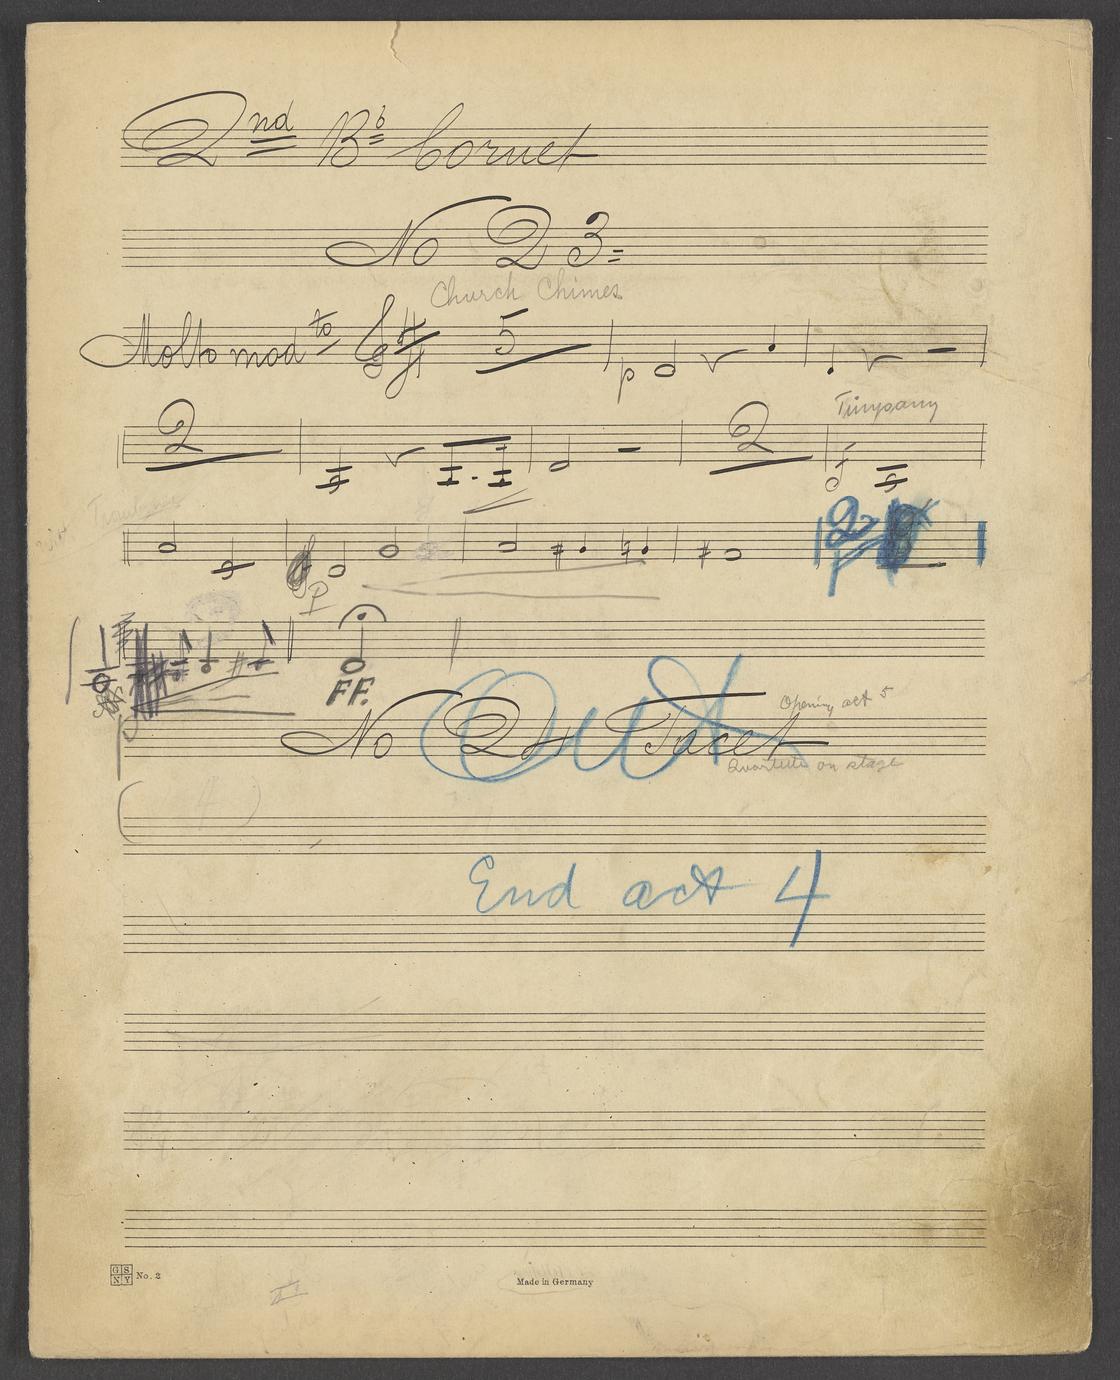 2nd Bb Cornet
No 23=
Church Chimes
Molto modto 5 p
Timpany
2 2
Trombone
p
2
FF.
Opening act 5
No 24 Tacet
Out
Quartette on stage
(4)
End act 4
GS NY No. 2
Made in Germany
II